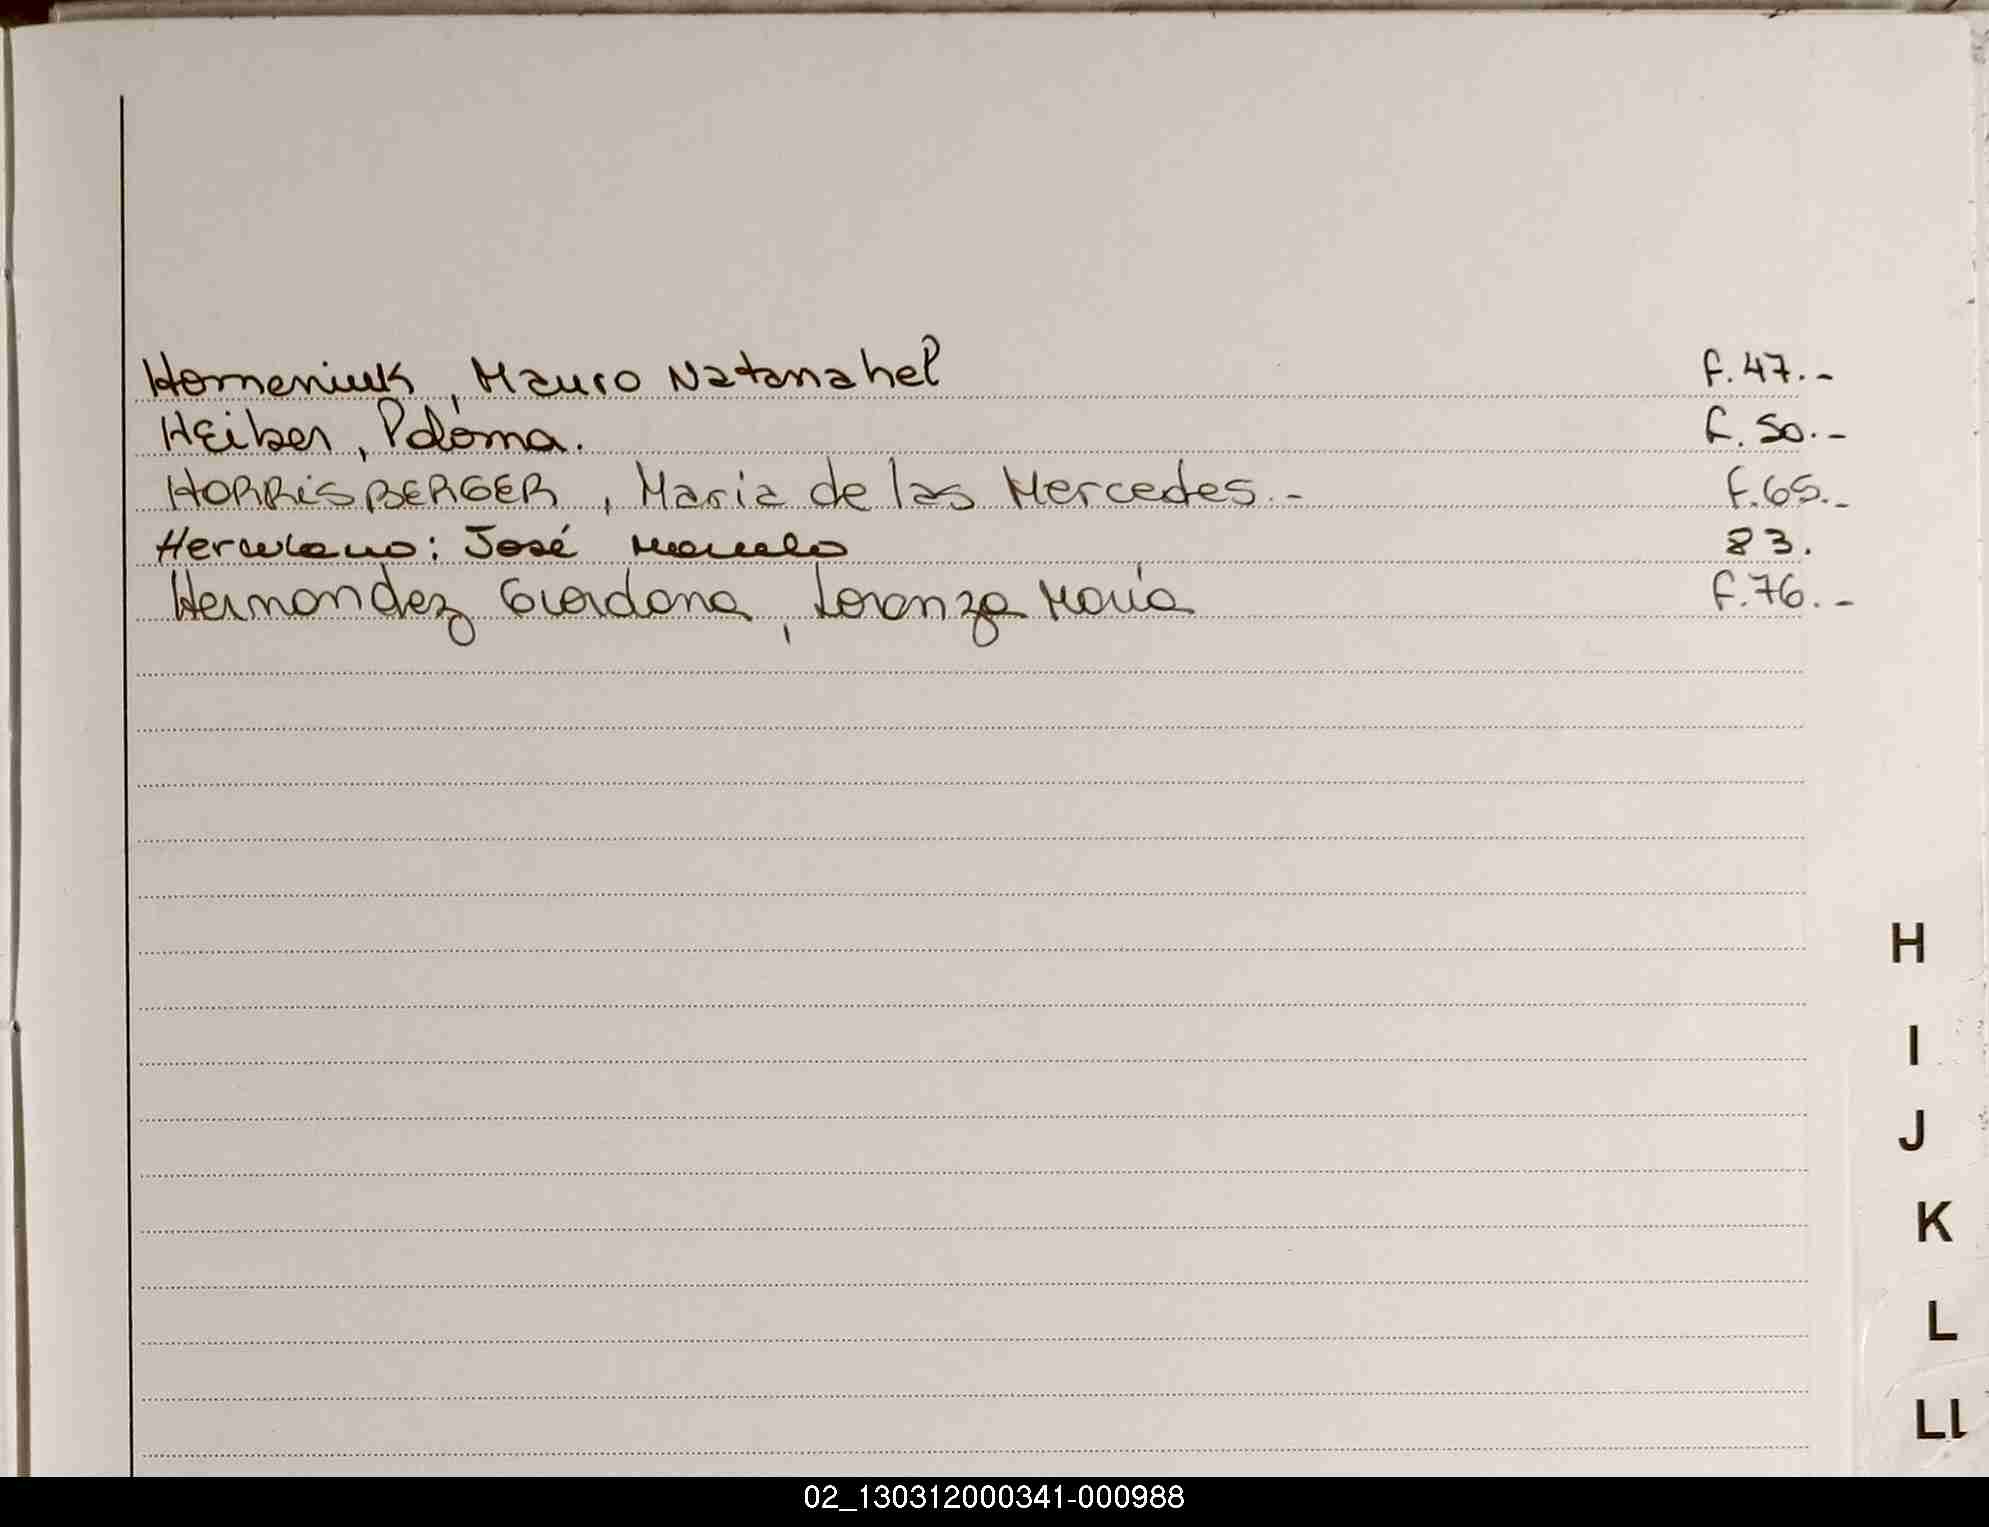 Homeniuk, Mauro Natanahel f. 47.-
HEiber, Paloma. f. 50.-
HORRiSBERGER, Maria de las Mercedes.- f. 65.-
Herculano: José Marcelo 83.
Hernandez Giordana, Lorenza Maria f. 76.-
H
I
J
K
L
Ll
02_130312000341-000988